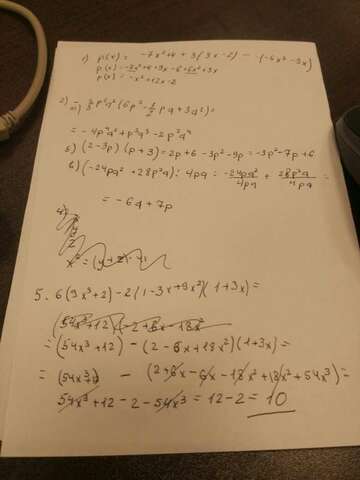 1) p(x) = -7x²+4 + 3(3x-2) - (-6x²-3x)
p(x) = -7x²+4+9x-6+6x²+3x
p(x) = -x²+12x-2
2) a) -⅔p²q²(6p²-½pq+3q²)=
= -4p⁴q²+p³q³-2p²q⁴
б) (2-3p)(p+3)=2p+6-3p²-9p=-3p²-7p+6
в) (-24pq²+28p²q):4pq = -24pq²/4pq + 28p²q/4pq =
= -6q+7p
5. 6(9x³+2)-2(1-3x+9x²)(1+3x)=
(54x³+12)(-2+6x-18x²
=(54x³+12) - (2-6x+18x²)(1+3x)=
= (54x³+12) - (2+6x-6x-18x²+18x²+54x³)=
54x³+12-2-54x³=12-2=10